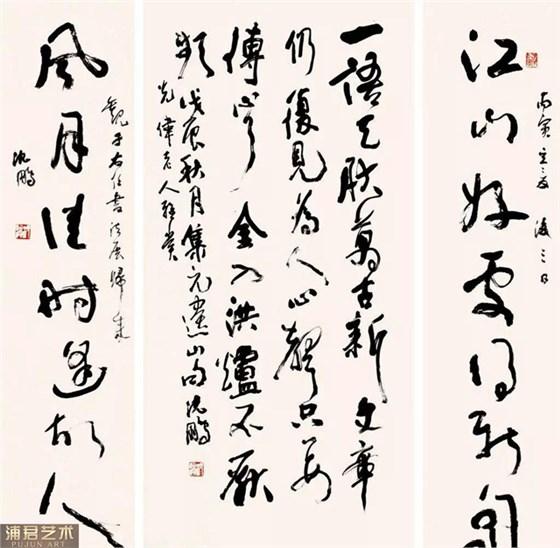 江山好處得新句
丙寅立夏後三日
一語天然萬古新文章
仍復見為人心聲只要
傳心了金入洪爐不厭
頻戊辰秋月集元遺山句沈鵬
偉老人雅賞
風月佳時逢故人
觀于右任書法展歸來
沈鵬
浦君艺术
PUJUN ART